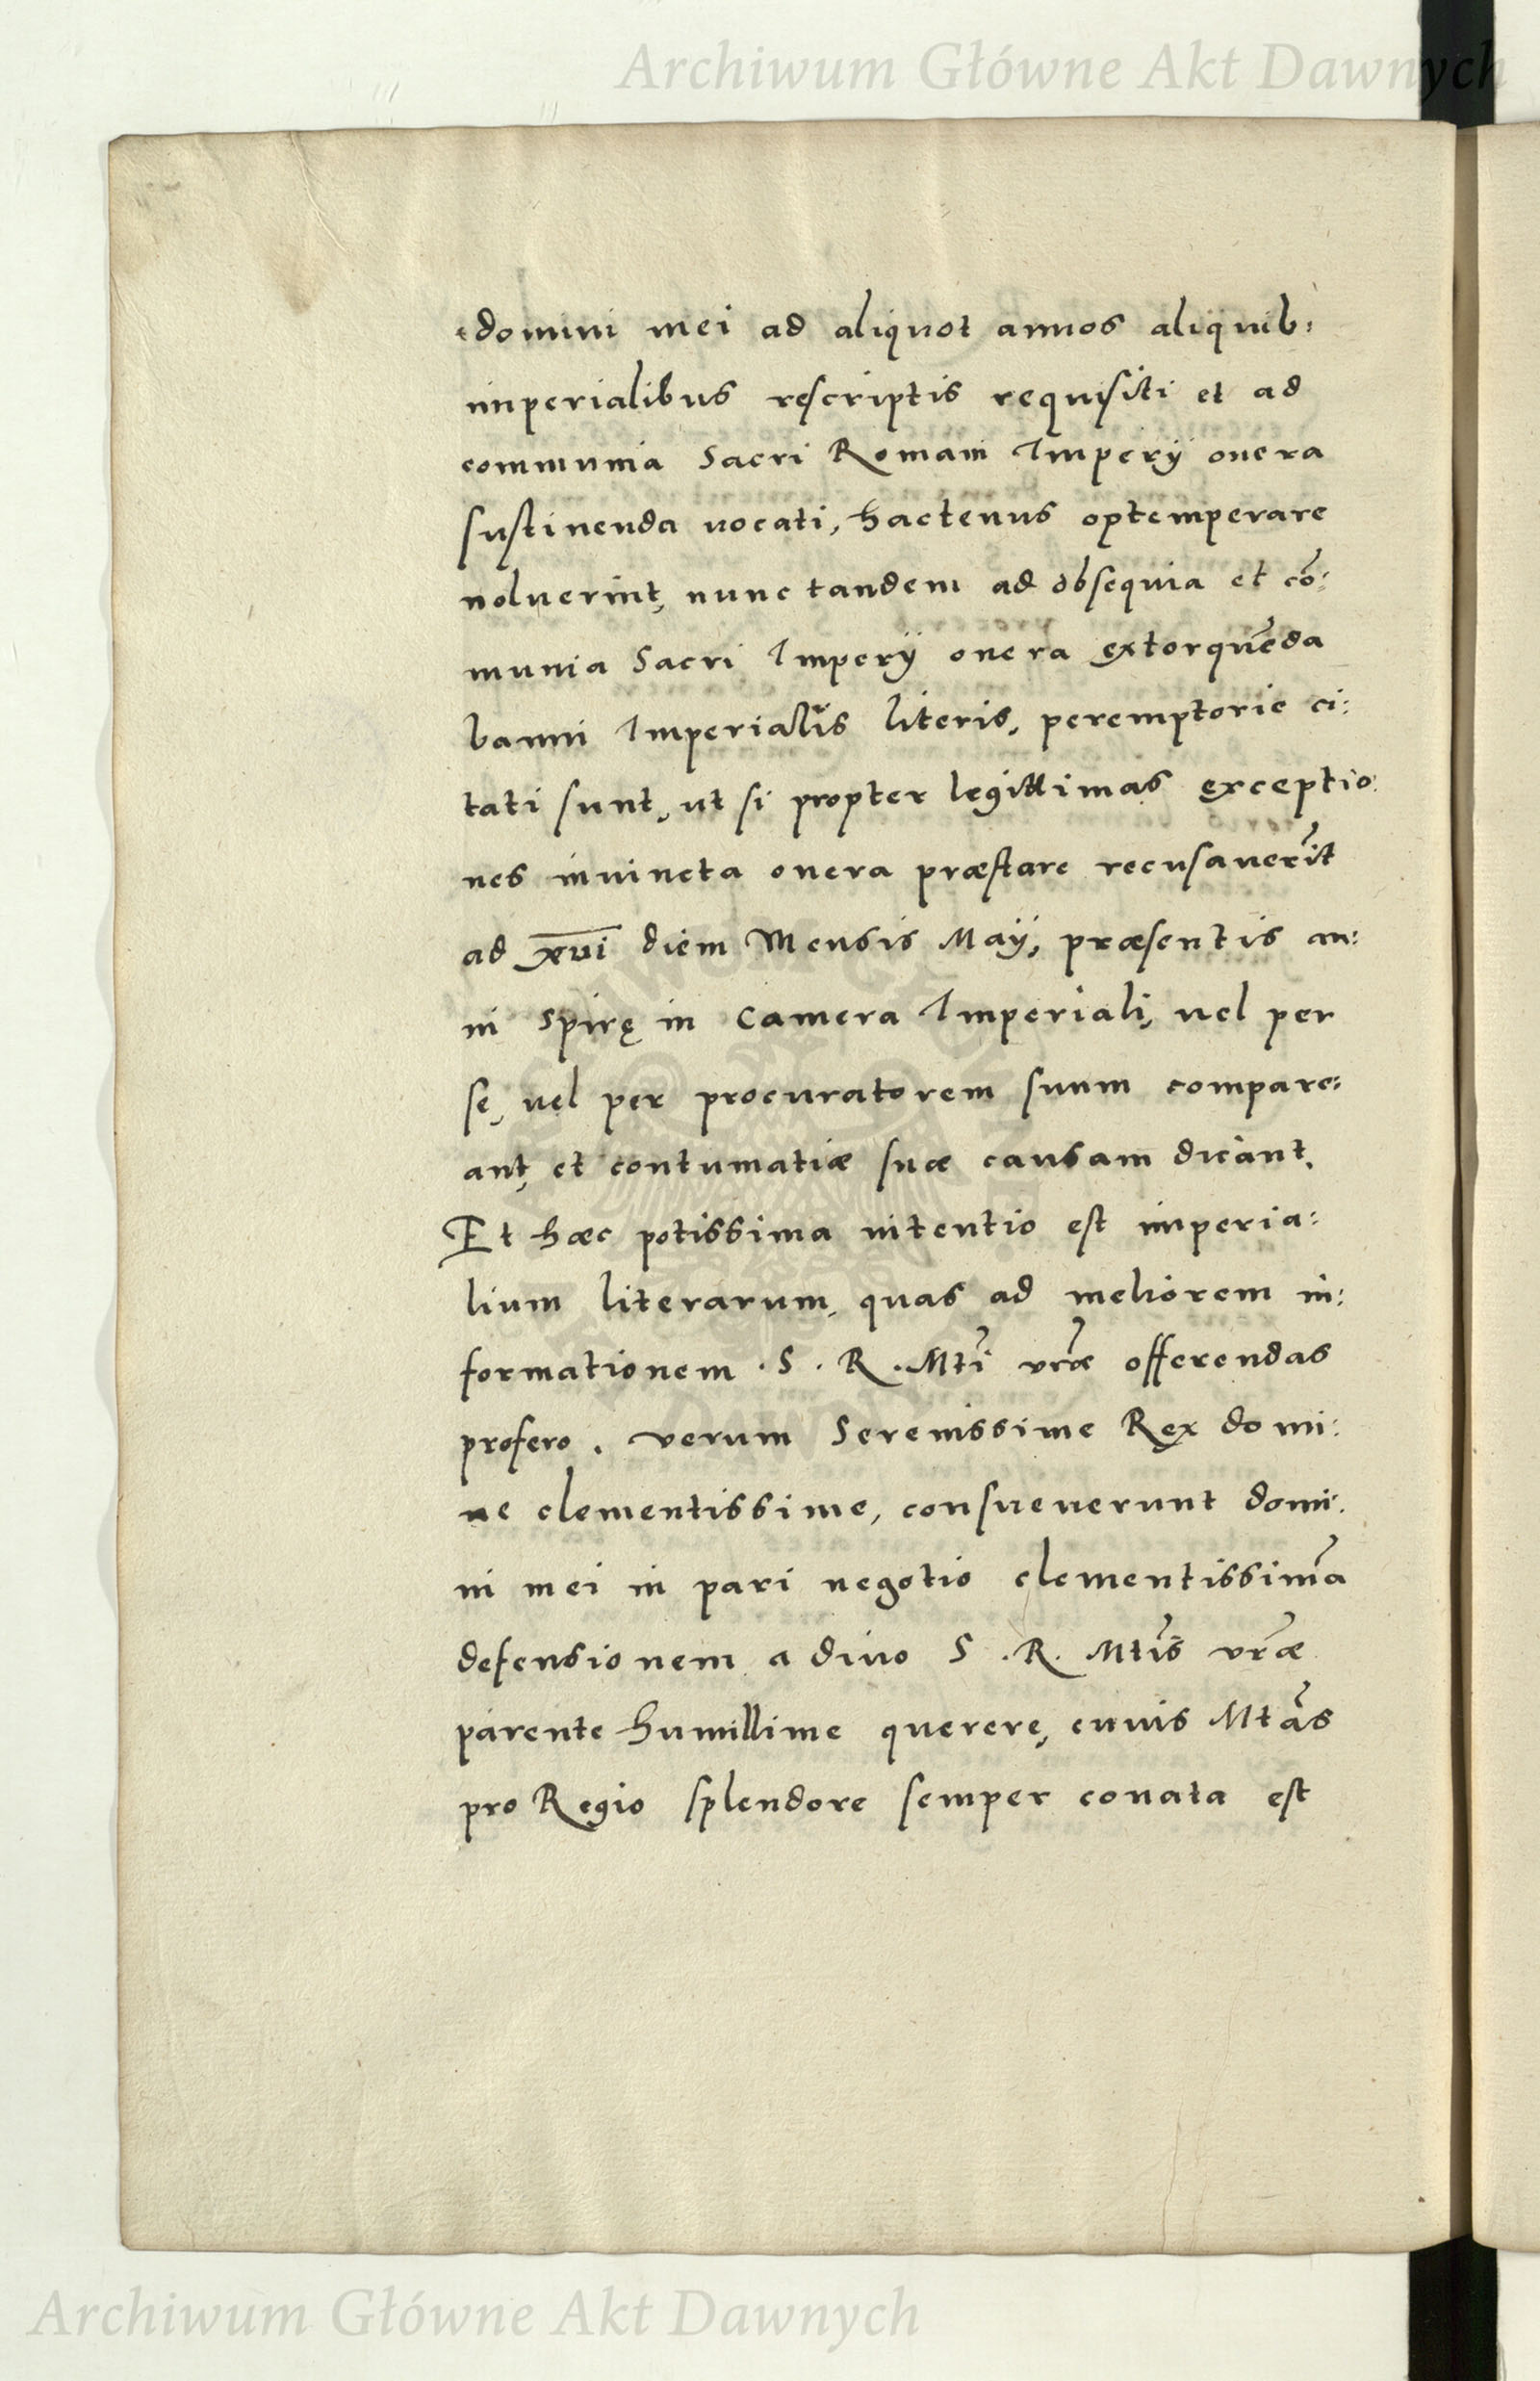 Archiwum Główne Akt Dawnych
domini mei ad aliquot annos aliquib:
imperialibus rescriptis requisiti et ad
communia Sacri Romani Imperij onera
sustinenda uocati, hactenus optemperare
noluerint, nunc tandem ad obsequia et cō:
munia Sacri Imperij onera extorquēda
banni Imperialis literis, peremptorie ci:
tati sunt, ut si propter legittimas exceptio:
nes iniuncta onera præstare recusauerīt
ad xvi diem Mensis Maij, præsentis an:
ni Spirę in Camera Imperiali, uel per
se, uel per procuratorem suum compare:
ant, et contumatiæ suæ causam dicant.
Et hæc potissima intentio est imperia:
lium literarum, quas ad meliorem in:
formationem .S. R. Mti vræ offerendas
profero. verum Serenissime Rex domi:
ne clementissime, consueuerunt domi:
ni mei in pari negotio clementissimā
defensionem a diuo S. R. Mtis vræ
parente humillime querere, cuius Mtas
pro Regio splendore semper conata est
Archiwum Główne Akt Dawnych